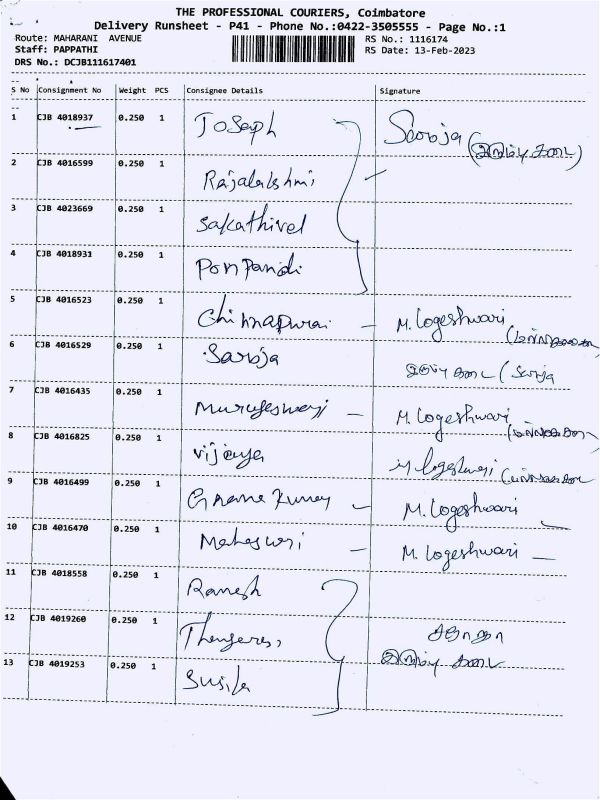 THE PROFESSIONAL COURIERS, Coimbatore
Delivery Runsheet - P41 - Phone No.:0422-3505555 - Page No.:1
Route: MAHARANI AVENUE RS No.: 1116174
Staff: PAPPATHI RS Date: 13-Feb-2023
DRS No.: DCJB111617401
S No Consignment No Weight PCS Consignee Details Signature
1 CJB 4018937 0.250 1 Joseph Saroja (இரும்பு கடை)
2 CJB 4016599 0.250 1 Rajalakshmi
3 CJB 4023669 0.250 1 Sakathivel
4 CJB 4018931 0.250 1 Pon Pandi
5 CJB 4016523 0.250 1 Chinnapurai - M. Logeshwari
6 CJB 4016529 0.250 1 Saroja இரும்பு கடை (Saroja
7 CJB 4016435 0.250 1 Murugeswari - M. Logeshwari
8 CJB 4016825 0.250 1 Vijaya M Logeshwari
9 CJB 4016499 0.250 1 Gnanakumar - M. Logeshwari
10 CJB 4016470 0.250 1 Maheswari - M. Logeshwari -
11 CJB 4018558 0.250 1 Ramesh
12 CJB 4019260 0.250 1 சரோஜா
இரும்பு கடை
13 CJB 4019253 0.250 1 Susila